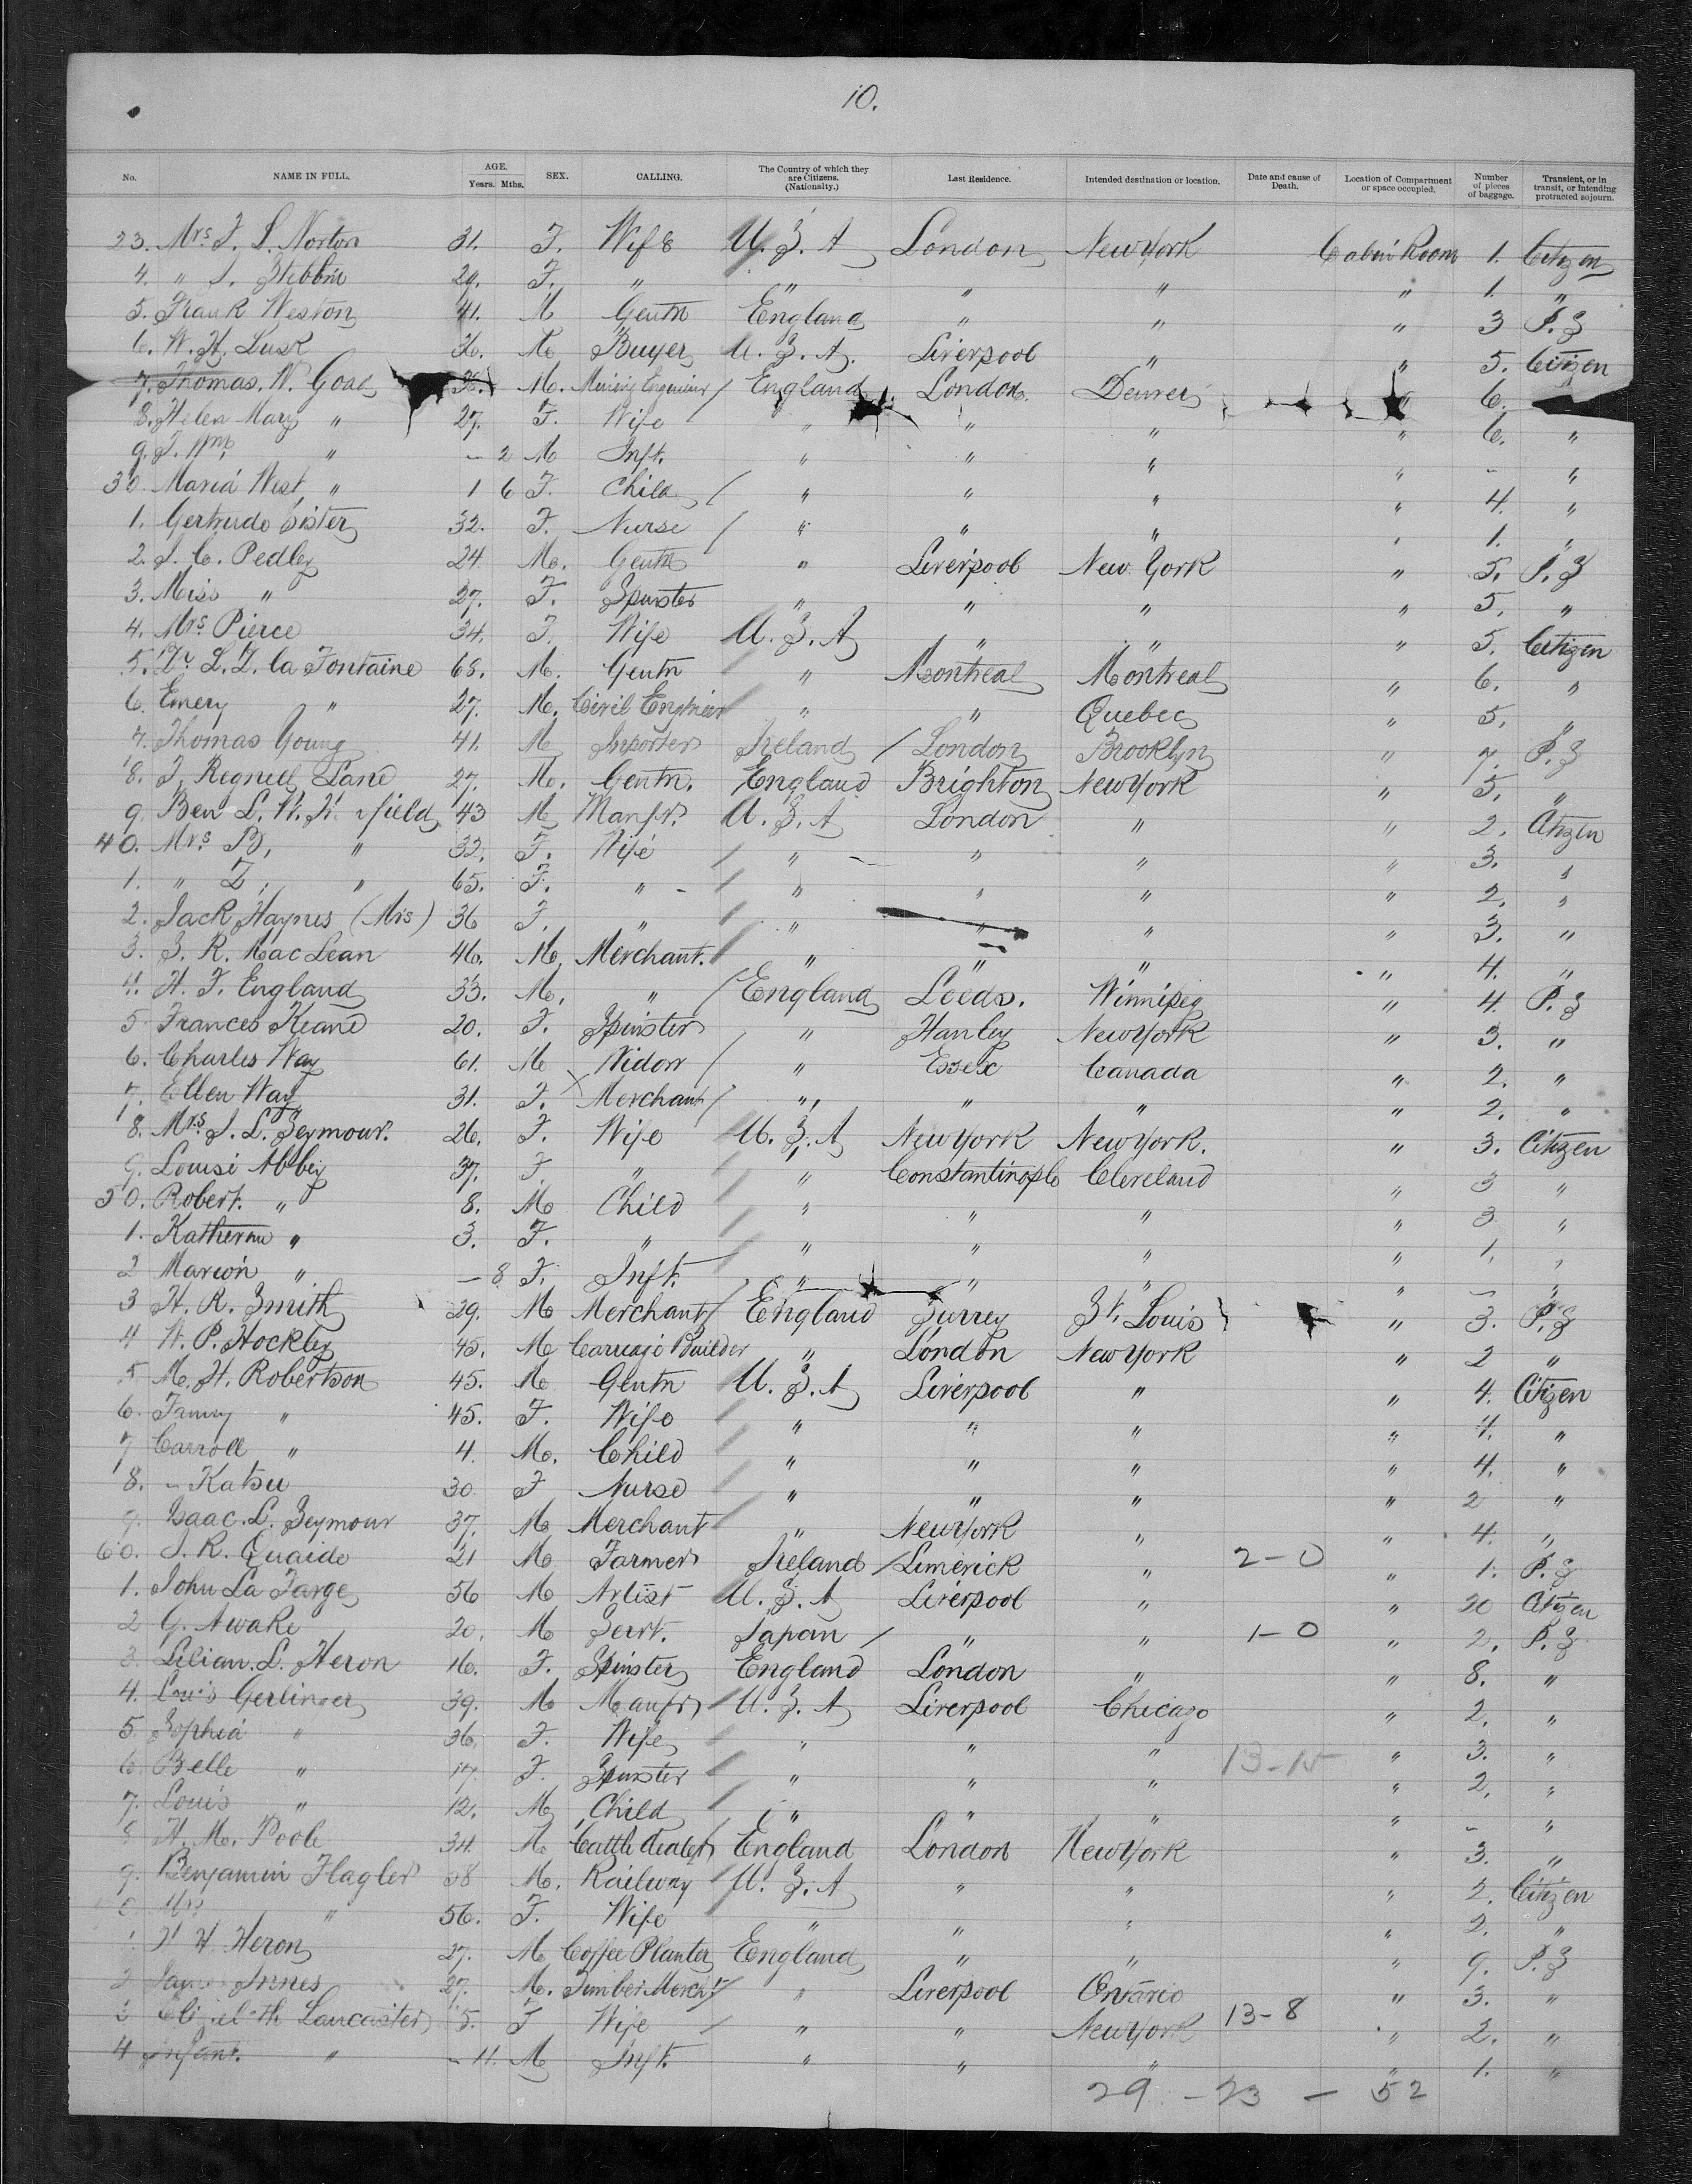 10.
No. NAME IN FULL. AGE. Years. Mths. SEX. CALLING. The Country of which they are Citizens. (Nationality.) Last Residence. Intended destination or location. Date and cause of Death. Location of Compartment or space occupied. Number of pieces of baggage. Transient, or in transit, or intending protracted sojourn.
23. Mrs F. L. Norton 31. F. Wife U.S.A London New York Cabin Room 1. Citizen
4. " Stebbin 29. F. " " " " " 1. "
5. Frank Weston 41. M Gentn England " " " 3 P.S
6. W. H. Lusk 36. M Buyer U.S.A. Liverpool " " 5. Citizen
7. Thomas. W. Goad M. Mining Engineer England London. Denver " 6.
8. Helen Mary " 27. F. Wife " " " " 6. "
9. Wm " – 2 M Inft. " " " " – "
30. Maria West " 1 6 F. Child " " " " 4. "
1. Gertrude Sister 32. F. Nurse " " " " 1. "
2. Pedley 24 M. Gentn " Liverpool New York " 5. P.S
3. Miss " 27. F. Spinster " " " " 5. "
4. Mrs Pierce 34. F. Wife U.S.A " " " 5. Citizen
5. Dr L. Z. La Fontaine 68. M. Gentn " Montreal Montreal " 6. "
6. Emery " 27. M. Civil Engineer " " Quebec " 5. "
7. Thomas Young 41. M Importer Ireland London Brooklyn " 7. P.S
8. Lane 27. M. Gentn. England Brighton New York " 5. "
9. Ben L. field 43 M Manfr. U.S.A London " " 2. Citizen
40. Mrs B, " 32. F. Wife " " " " 3. "
1. " Z, " 65. F. " " " " " 2. "
2. Jack Haynes (Mrs) 36 F. " " " " " 3. "
3. S. R. MacLean 46. M. Merchant. " " " " 4. "
4. H. F. England 33. M. " England Leeds. Winnipeg " 4. P.S
5 Frances Keane 20. F. Spinster " Hanley New York " 3. "
6. Charles Way 61. M Widow " Essex Canada " 2. "
7. Ellen Way 31. F. Merchant " " " " 2. "
8. Mrs I. L. Seymour. 26. F. Wife U.S.A New York New York. " 3. Citizen
9. Louisi Abbey 37. F " " Constantinople Cleveland " 3 "
50. Robert. " 8. M Child " " " " 3 "
1. Katherine " 3. F. " " " " " 1. "
2 Marion " – 8 F. Inft. " " " " – "
3 H. R. Smith 29. M Merchant England Surrey St. Louis " 3. P.S
4 W. P. Hockley 45. M Carriage Builder " London New York " 2 "
5 M. H. Robertson 45. M Gentn U.S.A Liverpool " " 4. Citizen
6. Fanny " 45. F. Wife " " " " 4. "
7 Carroll " 4. M. Child " " " " 4. "
8. – Katsu 30 F Nurse " " " " 2 "
9. Isaac. L. Seymour 37. M Merchant " New York " " 4. "
60. J. R. Quaide 21 M Farmer Ireland Limerick " 2–0 " 1. P.S
1. John La Farge 56 M Artist U.S.A Liverpool " " 20 Citizen
2 G. Awake 20. M Servt. Japan " " 1–0 " 2. P.S
3. Lilian. L. Heron 16. F. Spinster England London " " 8. "
4. Louis Gerlinger 39. M Manfr U.S.A Liverpool Chicago " 2. "
5. Sophia " 36. F. Wife " " " " 3. "
6. Belle " 17. F. Spinster " " " 13–15 " 2. "
7. Louis " 12. M Child " " " " – "
8 H. M. Poole 34. M. Cattle dealer England London New York " 3. "
9. Benjamin Flagler 58 M. Railway U.S.A " " " 2. Citizen
Mrs " 56. F. Wife " " " " 2. "
H. Heron 27. M Coffee Planter England " " " 9. P.S
2 James Innes 27. M. Timber Mercht " Liverpool Ontario " 3. "
3 Elizabeth Lancaster F Wife " " New York 13–8 " 2. "
4 Infant. " – 11. M Inft. " " " " 1. "
29 – 23 – 52